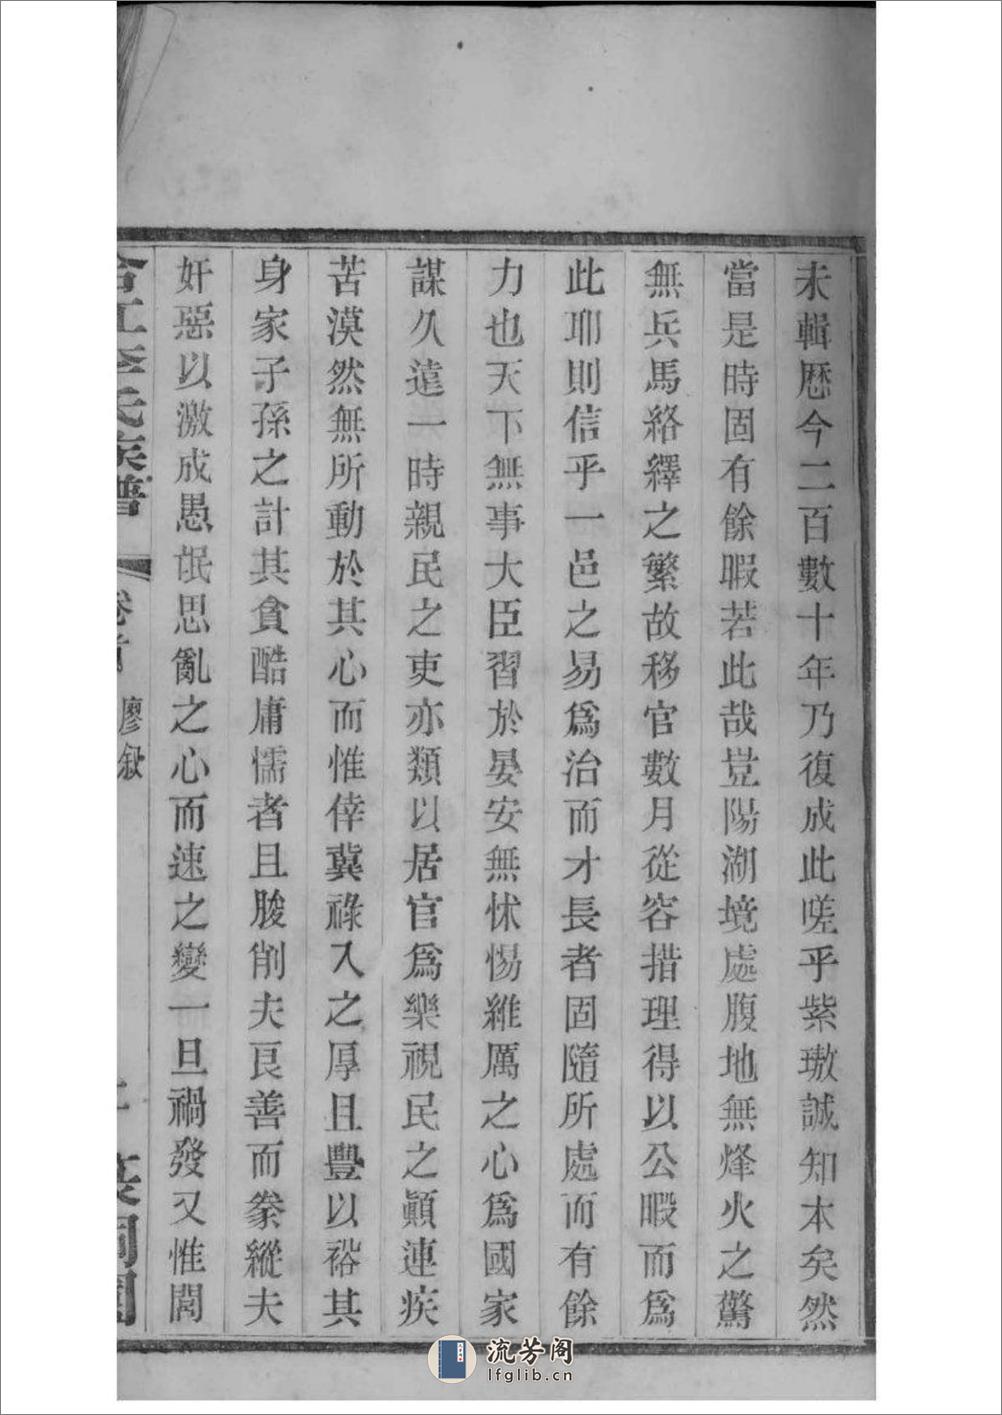 未輯歷今二百數十年乃復成此嗟乎紫璈誠知本矣然
當是時固有餘暇若此哉豈陽湖境處腹地無烽火之驚
無兵馬絡繹之繁故移官數月從容措理得以公暇而爲
此耶則信乎一邑之易爲治而才長者固隨所處而有餘
力也天下無事大臣習於晏安無怵惕維厲之心爲國家
謀久遠一時親民之吏亦類以居官爲樂視民之顛連疾
苦漠然無所動於其心而惟倖冀祿入之厚且豐以裕其
身家子孫之計其貪酷庸懦者且朘削夫良善而豢縱夫
奸惡以激成愚氓思亂之心而速之變一旦禍發又惟閉
合江李氏族譜 卷首 廖叙
流芳阁
lfglib.cn